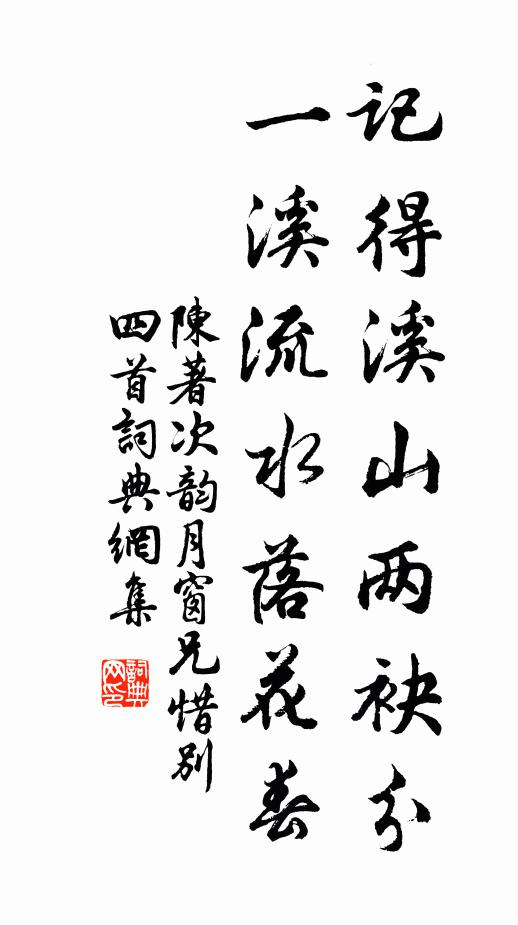 记得溪山两袂分
一溪流水落花春
陳著次韵月窗兄惜别
四首詞典網集
詞典网印